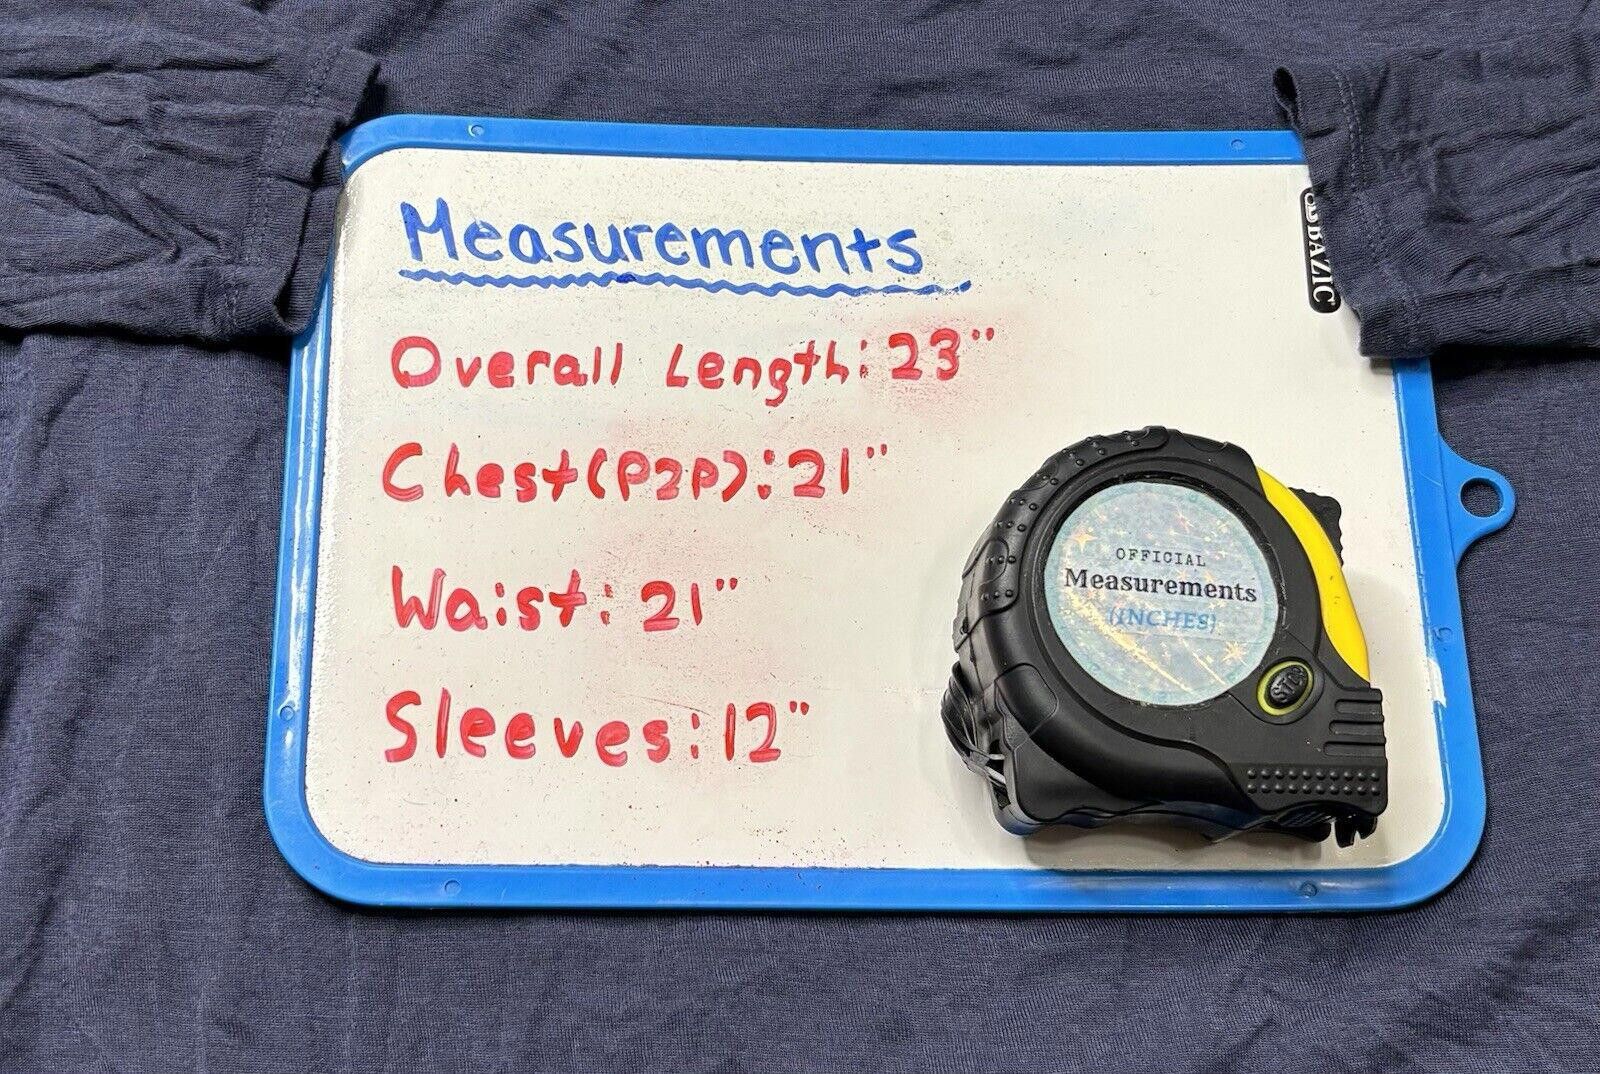 Measurements
Overall Length: 23"
Chest(P2P): 21"
Waist: 21"
Sleeves: 12"
BAZIC
OFFICIAL
Measurements
(INCHES)
STOP